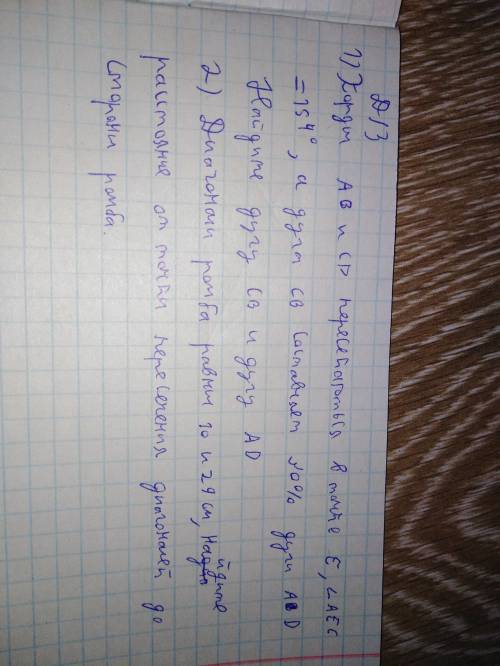 Д/З
1) Хорды AB и CD пересекаются в точке E, ∠AEC
= 154°, а дуга CB составляет 10% дуги AD
Найдите дугу CB и дугу AD
2) Диагонали ромба равны 10 и 24 см, найдите
расстояние от точки пересечения диагоналей до
стороны ромба.